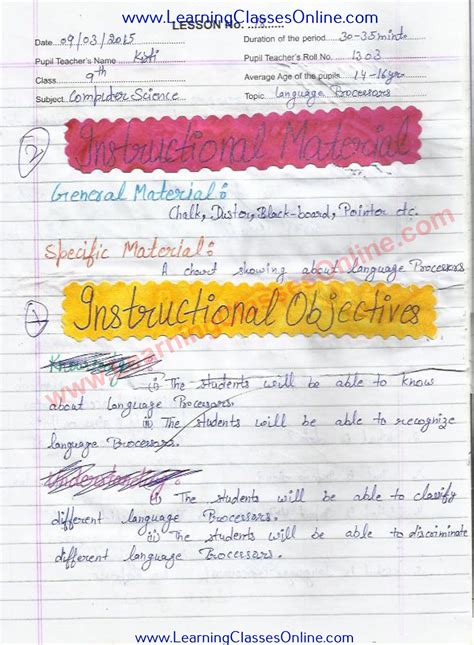 www.LearningClassesOnline.com
LESSON No.
Date 09/03/2015 Duration of the period 30-35 mints
Pupil Teacher's Name Kirti Pupil Teacher's Roll No. 1303
Class 9th Average Age of the pupils 14-16yrs
Subject Computer Science Topic Language Processors
② Instructional Material
General Material:
Chalk, Duster, Black-board, Pointer etc.
Specific Material:
A chart showing about language Processors
① Instructional Objectives
Knowledge
(i) The students will be able to know
about language Processors.
(ii) The students will be able to recognize
language Processors.
Understanding:
(i) The students will be able to classify
different language Processors.
(ii) The students will be able to discriminate
different language Processors.
www.LearningClassesOnline.com
www.LearningClassesOnline.com